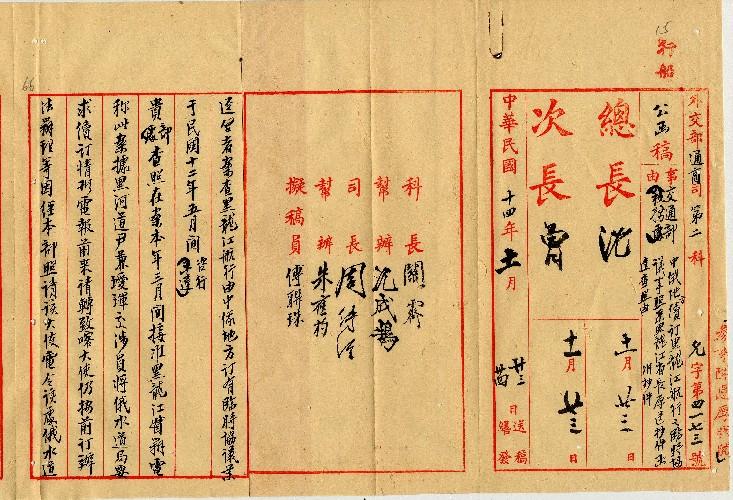 15
行船
外交部通商司第二科
允字第四一七三號
公函稿
事由
交通部
中俄地方續訂黑龍江航行之臨時協
議
總長沈
十一月廿三日
次長曾
十一月廿三日
中華民國十四年十一月
廿三日送稿
繕發
科長關霽
幫辦沈成鵠
司長周
幫辦朱
擬稿員傅聯珠
66
逕啓者案查黑龍江航行由中俄地方訂有臨時協議業
于民國十二年五月間咨行
貴部查照在案本年三月間接准黑龍江督辦電
稱此案據黑河道尹兼璦琿交涉員將俄水道局要
求續訂情形電報前來請轉致喀大使仍按前訂辦
法辦理等因經本部照請該大使電令該處俄水道